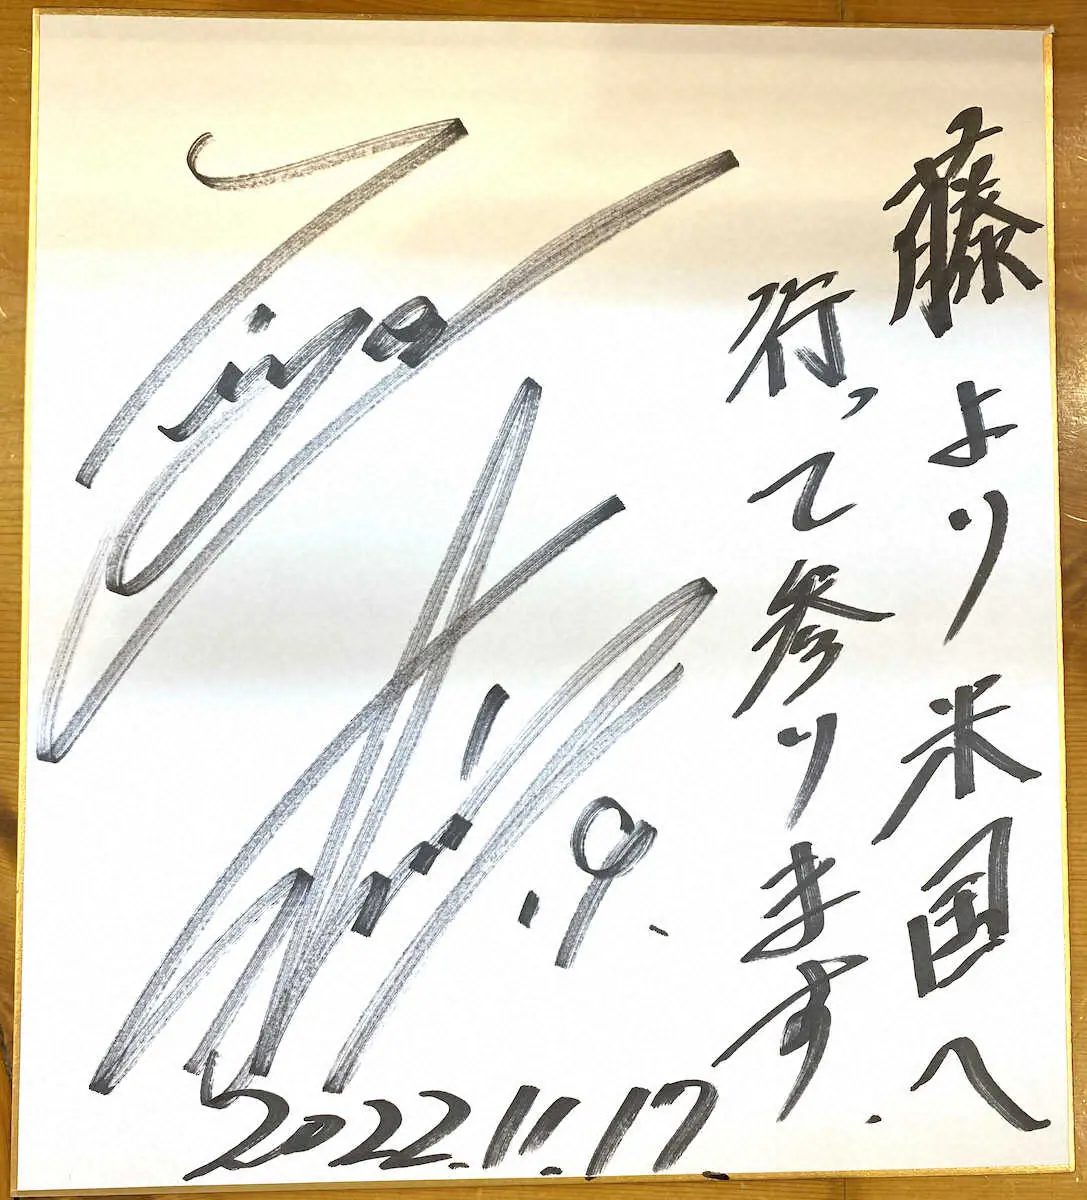 藤より米国へ
行って参ります.
.9.
2022.11.17.